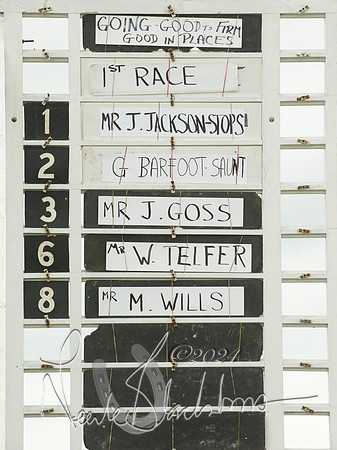 GOING - GOOD TO FIRM
GOOD IN PLACES
1ST RACE
1 MR J. JACKSON-STOPS
2 G BARFOOT-SAUNT
3 MR J. GOSS
6 MR W. TELFER
8 MR M. WILLS
©2024